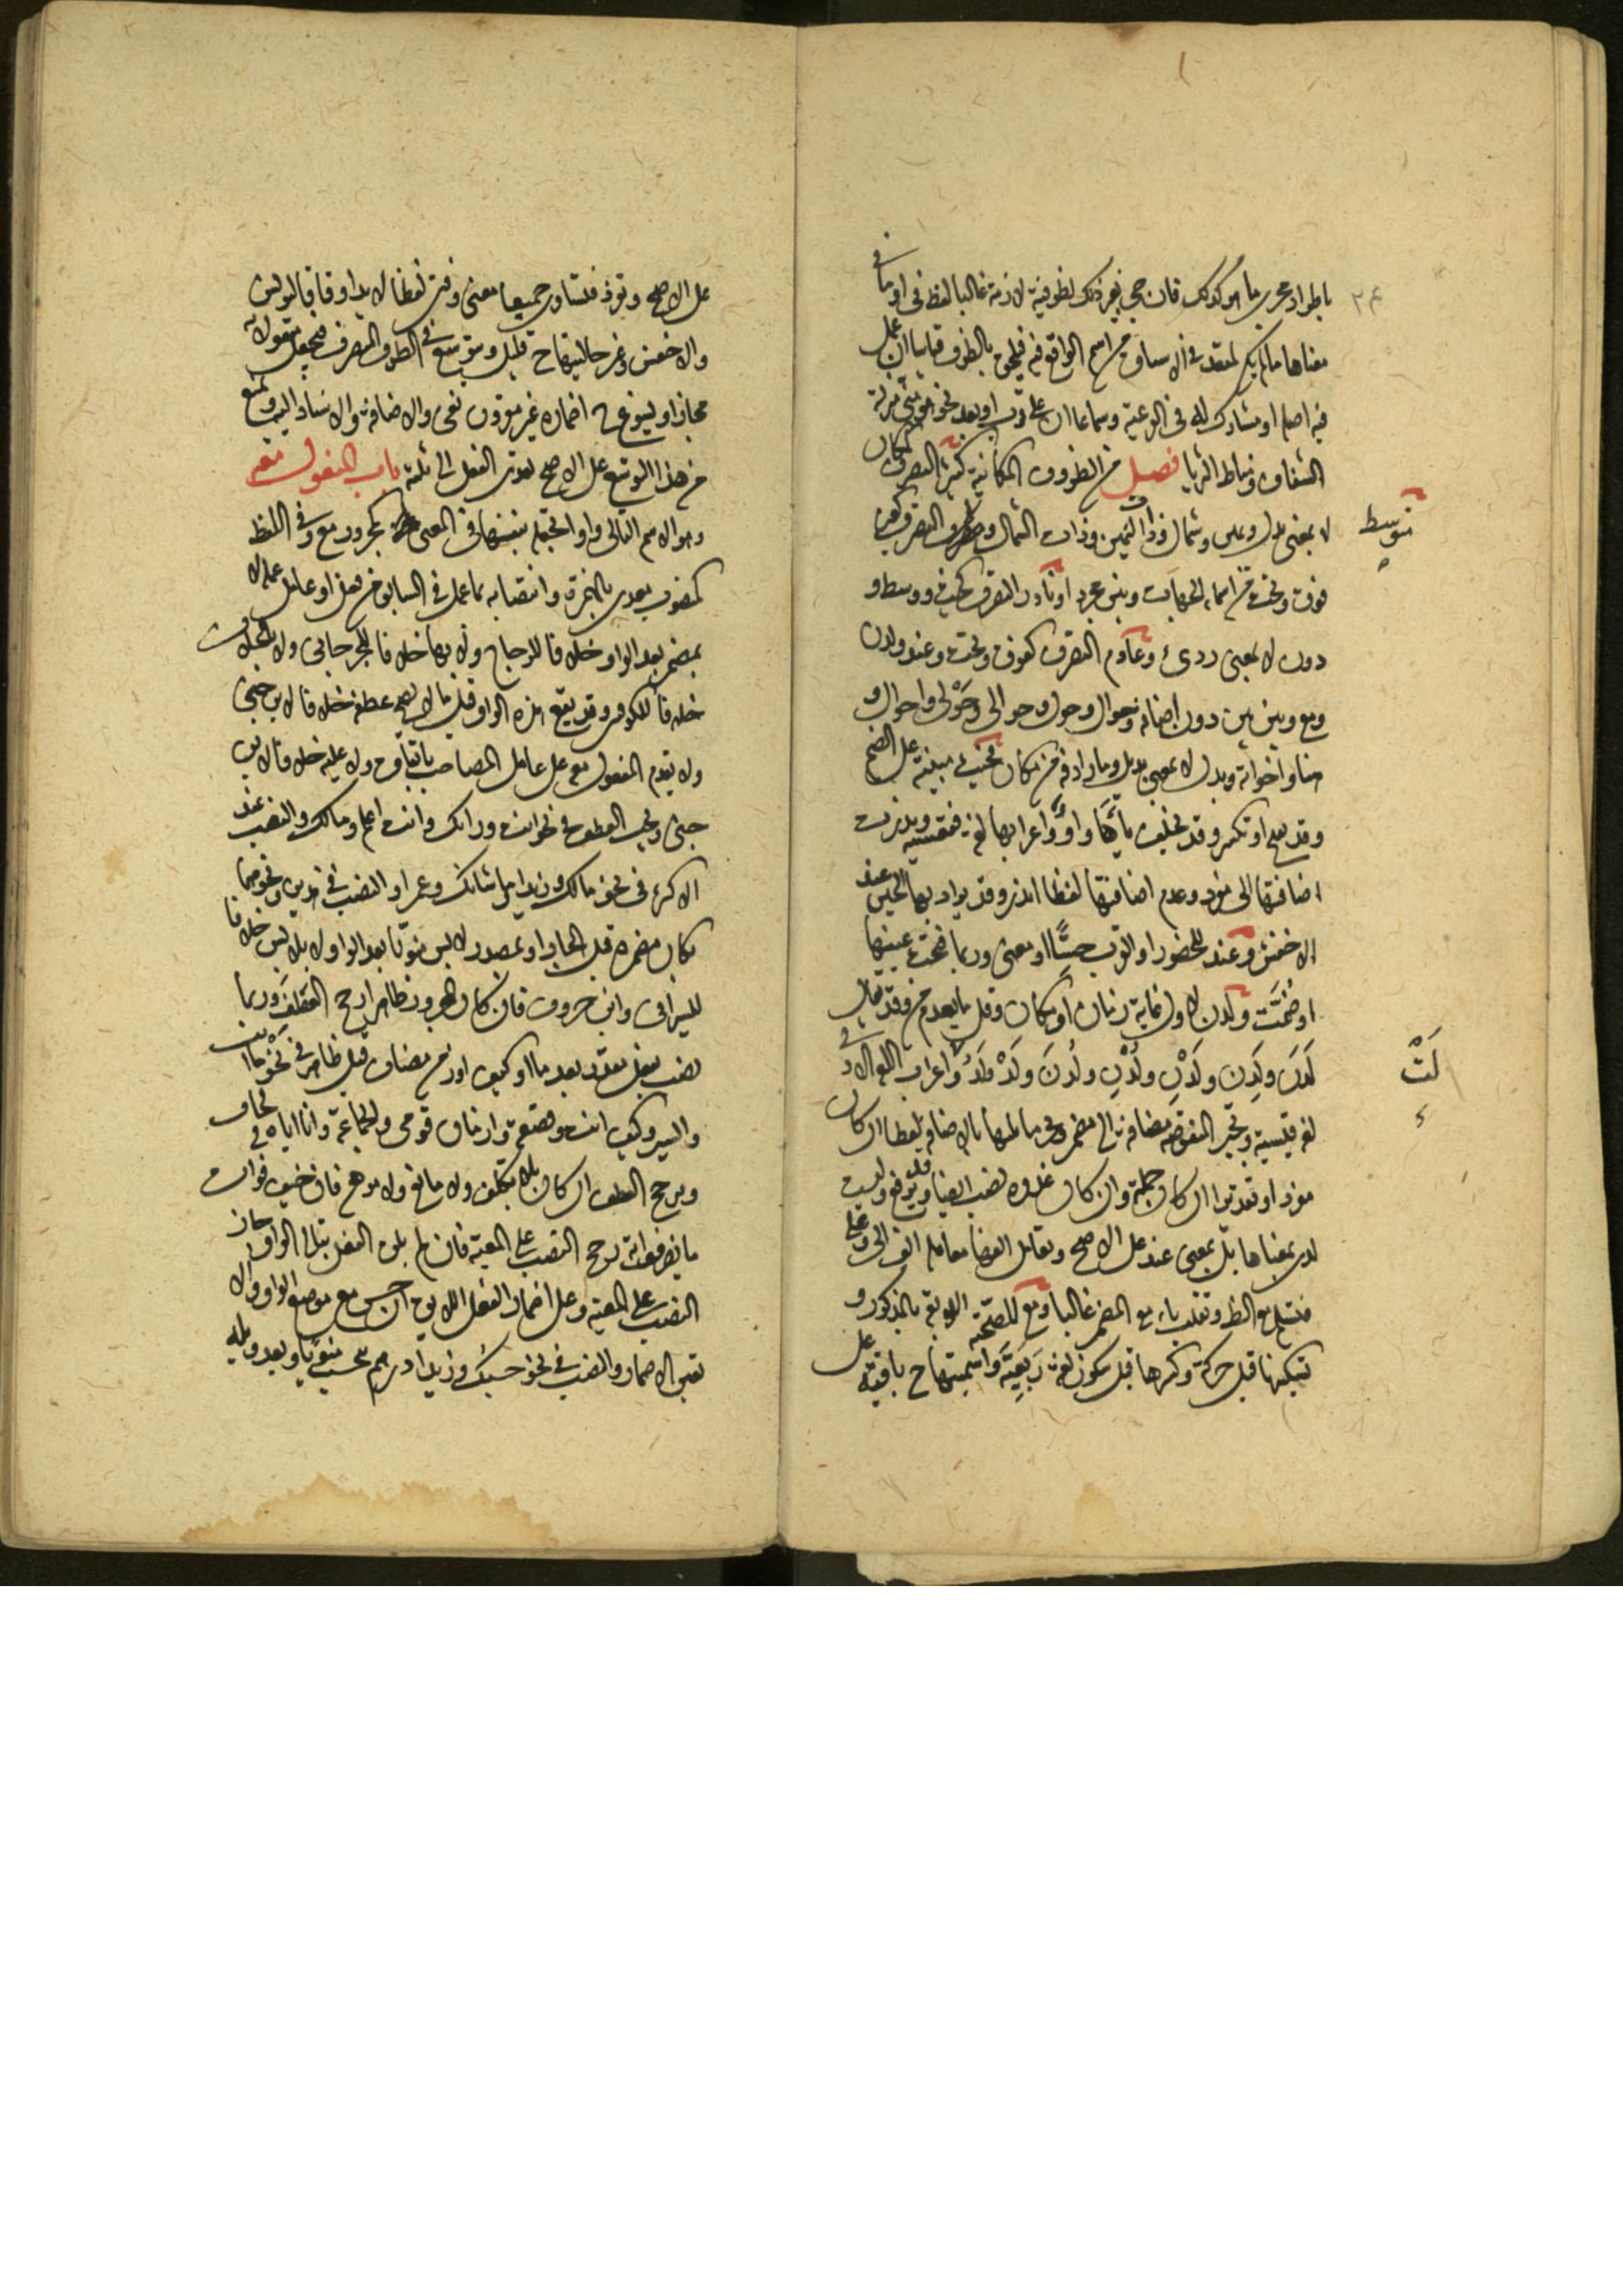 باطراد مجرى ما هو كذلك فان جئ بغير ذلك لظرفية لازمة غالبا لفظ في او ما في
معناها ما لم يكن
فيه اصله او مشارك له في الفرعية وسماعا ان دل على قرب او بعد نحو هو مني منزلة
الشغاف ومناط الثريا فصل من الظروف المكانية كثير التصرف كمكان
لا بمعنى بدل ويمين وشمال وذات اليمين وذات الشمال ومتوسط التصرف كغير
فوق وتحت من اسماء الجهات وبين مجردا ونادر التصرف كحيث ووسط و
دون لا بمعنى ردئ وعادم التصرف كفوق وتحت وعند ولدن
ومع وبين بين دون اضافة وحوال وحول وحوالي وحولي واحوال و
هنا واخواته وبدل لا بمعنى بديل وما رادفه من مكان فحيث مبنية على الضم
وقد تفتح او تكسر وقد تخلف ياءها واو واعرابها لغة فقعسية وندرت
اضافتها الى مفرد وعدم اضافتها لفظا اندر وقد يراد بها الحين عند
الاخفش وعند للحضور او القرب حسا او معنى وربما فتحت عينها
او ضمت ولدن لاول غاية زمان او مكان وقل ما يعدم من وقد يقال
لدن ولدن ولدن ولدن ولدن ولد ولد ولد واعراب اللغة الاولى
لغة قيسية وتجبر المنقوصة مضافة الى مضمر ويجر ما يليها بالاضافة لفظا ان كان
مفردا وتقديرا ان كان جملة وان كان غدوة نصب ايضا وقد يرفع وليست
لدى بمعناها بل بمعنى عند على الاصح وتعامل الفها معاملة الف الى وعلى
فتسلم مع الظاهر وتقلب ياء مع المضمر غالبا ومع للصحبة اللائقة بالمذكور و
تسكينها قبل حركة وكسرها قبل سكون لغة ربعية واسميتها ح باقية على
٢٤
متوسط
لَتْ
على الاصح وتفرد فتساوي جميعا معنى وفتى لفظا لا يدا وفاقا ليونس
والاخفش وغير حاليتها ح قليل ويتوسع في الظرف المتصرف فيجعل مفعولا به
مجازا ويسوغ ح اضماره غير مقرون بفي والاضافة والاسناد اليه ويمنع
من هذا التوسع على الاصح تعدى الفعل الى ثلثة باب المفعول معه
وهو الاسم التالي واوا تجعله بنفسها في المعنى كمجرور مع وفي اللفظ
كمنصوب معدى بالهمزة وانتصابه بما عمل في السابق من فعل او عامل عمله لا
بمضمر بعد الواو خلافا للزجاج ولا بها خلافا للجرجاني ولا بالخلاف
خلافا للكوفيين وقد يقع هذه الواو قبل ما لا يصح عطفه خلافا لابن جني
ولا يقدم المفعول معه على عامل المصاحب باتفاق ولا عليه خلافا لابن
جني ويجب العطف في نحو انت ورايك وانت اعلم ومالك والنصب عند
الاكثر في نحو مالك وزيدا وما شانك وعمرا والنصب في هذين ونحوهما
بكان مضمرة قبل الجار او بمصدر لابس منويا بعد الواو لا بلابس خلافا
للسيرافي وابن خروف فان كان المجرور ظاهرا رجح العطف وربما
نصب بفعل مقدر بعد ما او كيف او زمن مضاف قبل ظاهر في نحو ما انت
والسير وكيف انت وقصعة وازمان قومي والجماعة وانا اياه في لحاف
ويرجح العطف ان كان بلا تكلف ولا مانع ولا موهن فان خيف فوات
ما يضر فواته رجح النصب على المعية فان لم يلق الفعل بتالي الواو جاز
النصب على المعية وعلى اضمار الفعل اللائق ان حسن مع موضع الواو والا
تعين الاضمار والنصب في نحو حسبك وزيدا درهم بحسب منويا وبعد وويله